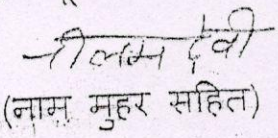 नीलम देवी
(नाम मुहर सहित)